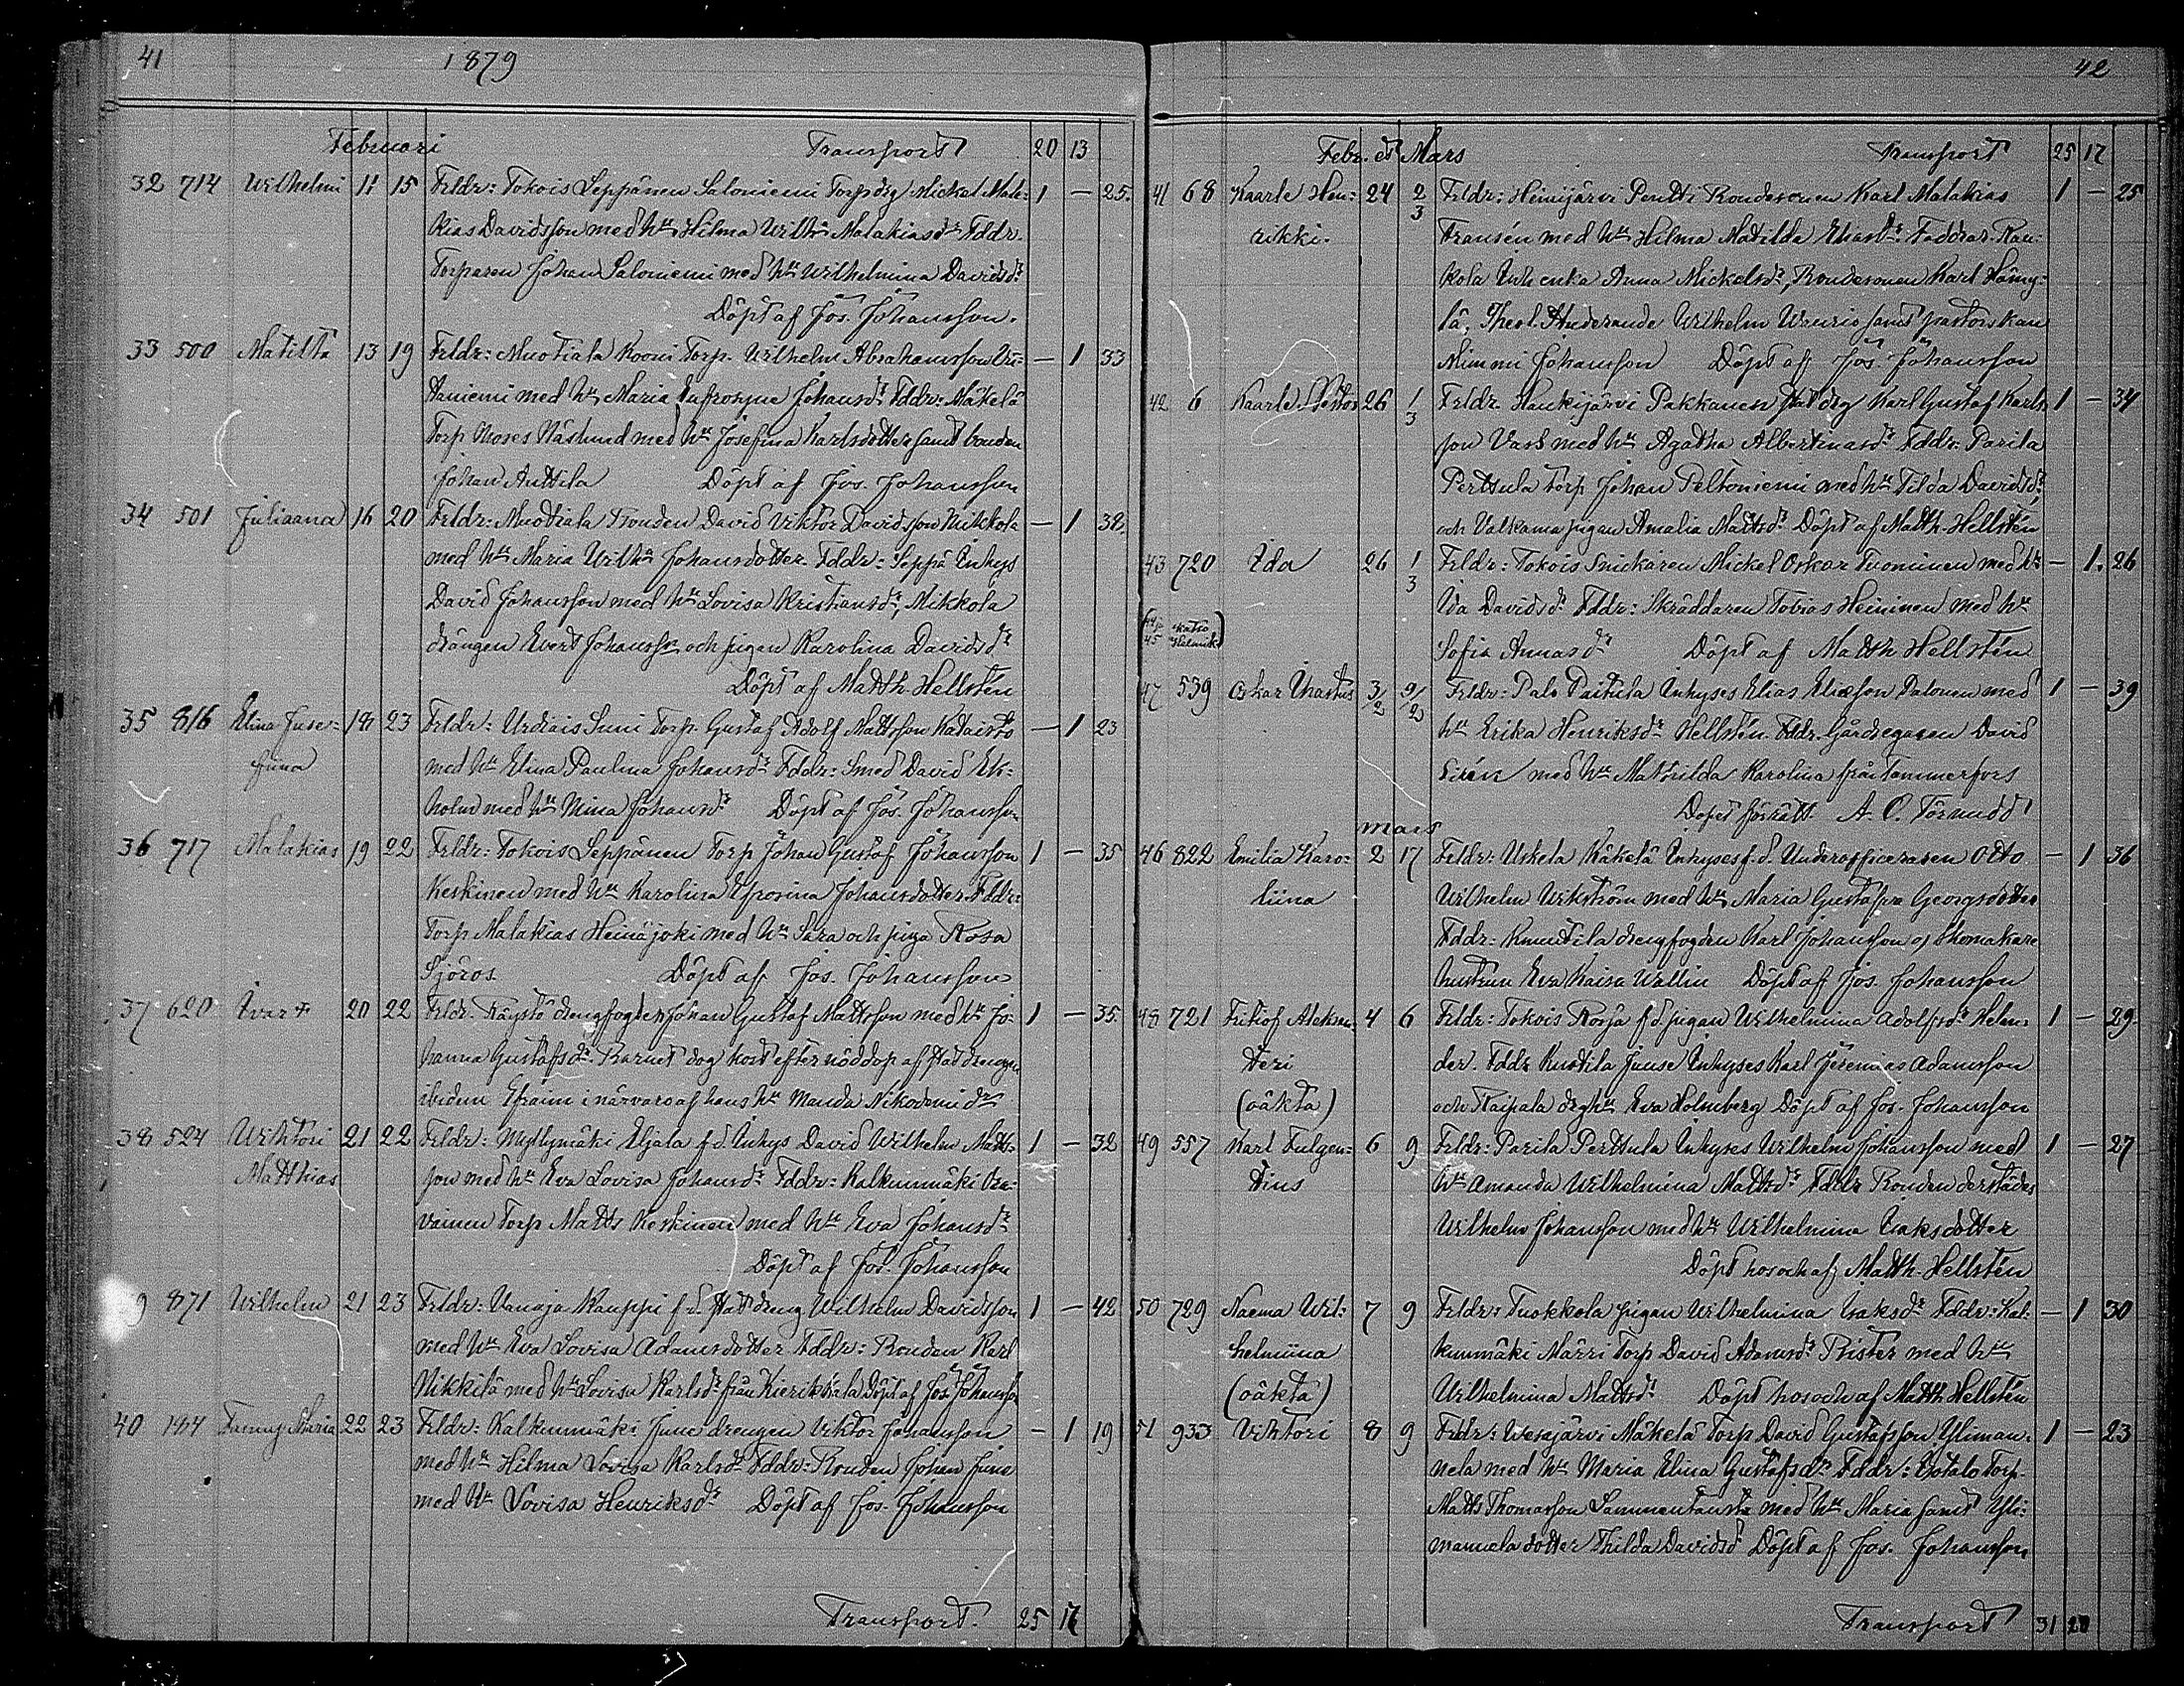 41
1879
Februari Transport 20 13
32 714 Wilhelmi 11 15 Frldr: Tokois Leppänen Saloniemi Torpdrg Mickel Mala- 1 — 25.
kias Davidsson med Hu Hilma Wilhа Malakiasdr Fddr.
Torparen Johan Saloniemi med Hu Wilhelmina Davidsdr
Döpt af Jos. Johansson.
33 500 Matilta 13 19 Frldr: Muotiala Kooni Torp. Wilhelm Abrahamsson — 1 33
med Hu Maria Eufrosyne Johansdr Fddr: Mäkelä
Torp Moses Näslund med Hu Josefina Karlsdotter samt bonden
Johan Anttila Döpt af Jos. Johansson
34 501 Juliaana 16 20 Frldr: Muotiala Bonden David Viktor Davidsson Mikkola — 1 38.
med Hu Maria Wilha Johansdotter. Fddr: Seppä Inhys
David Johansson med Hu Lovisa Kristiansdr, Mikkola
drängen Evert Johansson och pigan Karolina Davidsdr
Döpt af Matth. Hellstén
35 816 Elina Juse- 18 23 Frldr: Urdiais Suni Torp. Gustaf Adolf Mattsson Kataisto — 1 23
fiina med Hu Elina Paulina Johansdr Fddr: Smed David Ek-
holm med Hu Mina Johansdr Döpt af Jos. Johansson
36 717 Malakias 19 22 Frldr: Tokois Leppänen Torp Johan Gustaf Johansson 1 — 35
Keskinen med Hu Karolina Efrosina Johansdotter. Fddr:
Torp Malakias Heinäjoki med Hu Sara och piga Rosa
Sjöros. Döpt af Jos. Johansson
37 620 Ivar + 20 22 Frldr. Räystö drengfogden Johan Gustaf Mattsson med Hu Jo- 1 — 35
hanna Gustafsdr. Barnet dog kort efter nöddop af statdrengen
ibidem Efraim i närvaro af hans Hu Manda Nikodemidr
38 524 Wihtori 21 22 Frldr: Myllymäki Eljala f.d. Inhys David Wilhelm Matts- 1 — 32
Matthias son med Hu Eva Lovisa Johansdr Fddr: Kalkunmäki Ora-
vainen Torp Matts Keskinen med Hu Eva Johansdr
Döpt af Jos. Johansson
9 871 Wilhelm 21 23 Frldr: Vanaja Kauppi f.d. Statdreng Wilhelm Davidsson 1 — 42
med Hu Eva Lovisa Adamsdotter Fddr: Bonden Karl
Nikkilä med Hu Lovisa Karlsdr från Kierikkala Döpt af Jos. Johansson
40 Fanny Maria 22 23 Frldr: Kalkunmäki June drengen Viktor Johansson — 1 19
med Hu Hilma Lovisa Karlsdr Fddr: Bonden Johan June
med Hu Lovisa Henriksdr Döpt af Jos. Johansson
Transport. 25 17
42
Febr. et Mars Transport 25 17
41 68 Kaarle Hen- 24 2/3 Frldr: Heinijärvi Pentti Bondesonen Karl Malakias 1 — 25
rikki. Fransén med Hu Hilma Matilda Eliasdr. Faddrar: Kau-
kola Inh enka Anna Mickelsdr, Bondesonen Karl Hämy-
lä, Theol. Studerande Wilhelm Waurio samt pastorskan
Mimmi Johansson Döpt af Jos. Johansson
42 6 Kaarle Nestor 26 1/3 Frldr. Haukijärvi Pakkanen statdrg Karl Gustaf Karls- 1 — 34
son Vass med Hu Agatha Albertinasdr Fddr: Parila
Perttula Torp Johan Peltoniemi med Hu Tilda Davidsdr
och Valkama pigan Amalia Mattsdr Döpt af Matth. Hellstén
43 720 Ida 26 1/3 Frldr: Tokois Snickaren Mickel Oskar Tuominen med Hu — 1. 26
Ida Davidsdr Fddr: Skräddaren Tobias Heininen med Hu
(44/45 katso Helmik.) Sofia Annasdr Döpt af Matth Hellstén
47 539 Oskar 3/2 9/2 Frldr: Palo Paitula Inhyses Elias Eliasson Salonen med 1 — 39
Hu Erika Henriksdr Hellstén. Fddr. Gårdsegaren David
Sirén med Hu Mathilda Karolina från Tammerfors
Dopet förrätt. A. O. Törnudd
Mars
46 822 Emilia Karo- 2 17 Frldr: Uskela Käkelä Inhyses f.d. Underofficeraren Otto — 1 36
liina Wilhelm Wikström med Hu Maria Gustafva Georgsdotter
Fddr: Knuutila drengfogden Karl Johansson o skomakare
hustrun Eva Kaisa Wallin Döpt af Jos. Johansson
48 721 Fritiof Aleksan- 4 6 Frldr: Tokois Rossa f.d. pigan Wilhelmina Adolfsdr Helan- 1 — 29
teri der. Fddr Knutila Juuse Inhyses Karl Jeremias Adamsson
(oäkta) och Raipala drghu Eva Holmberg Döpt af Jos. Johansson
49 557 Karl Fulgen- 6 9 Frldr: Parila Perttula Inhyses Wilhelm Johansson med 1 — 27
tius Hu Amanda Wilhelmina Mattsdr Fddr Bonden derstädes
Wilhelm Johansson med Hu Wilhelmina Isaksdotter
Döpt hos och af Matth. Hellstén
50 729 Naema Wil- 7 9 Frldr: Tuokkola pigan Wilhelmina Isaksdr Fddr: Kal- — 1 30
helmiina kunmäki Märri Torp David Adamsdr Prister med Hu
(oäkta) Wilhelmina Mattsdr Döpt hos och af Matth Hellstén
51 933 Vihtori 8 9 Frldr: Wesajärvi Mäkelä Torp David Gustafsson Yliman- 1 — 23
nela med Hu Maria Elina Gustafsdr Fddr: Isotalo Torp.
Matts Thomasson Sammontausta med Hu Maria samt Yli-
mannela dotter Thilda Davidsdr Döpt af Jos. Johansson
Transport 31 20